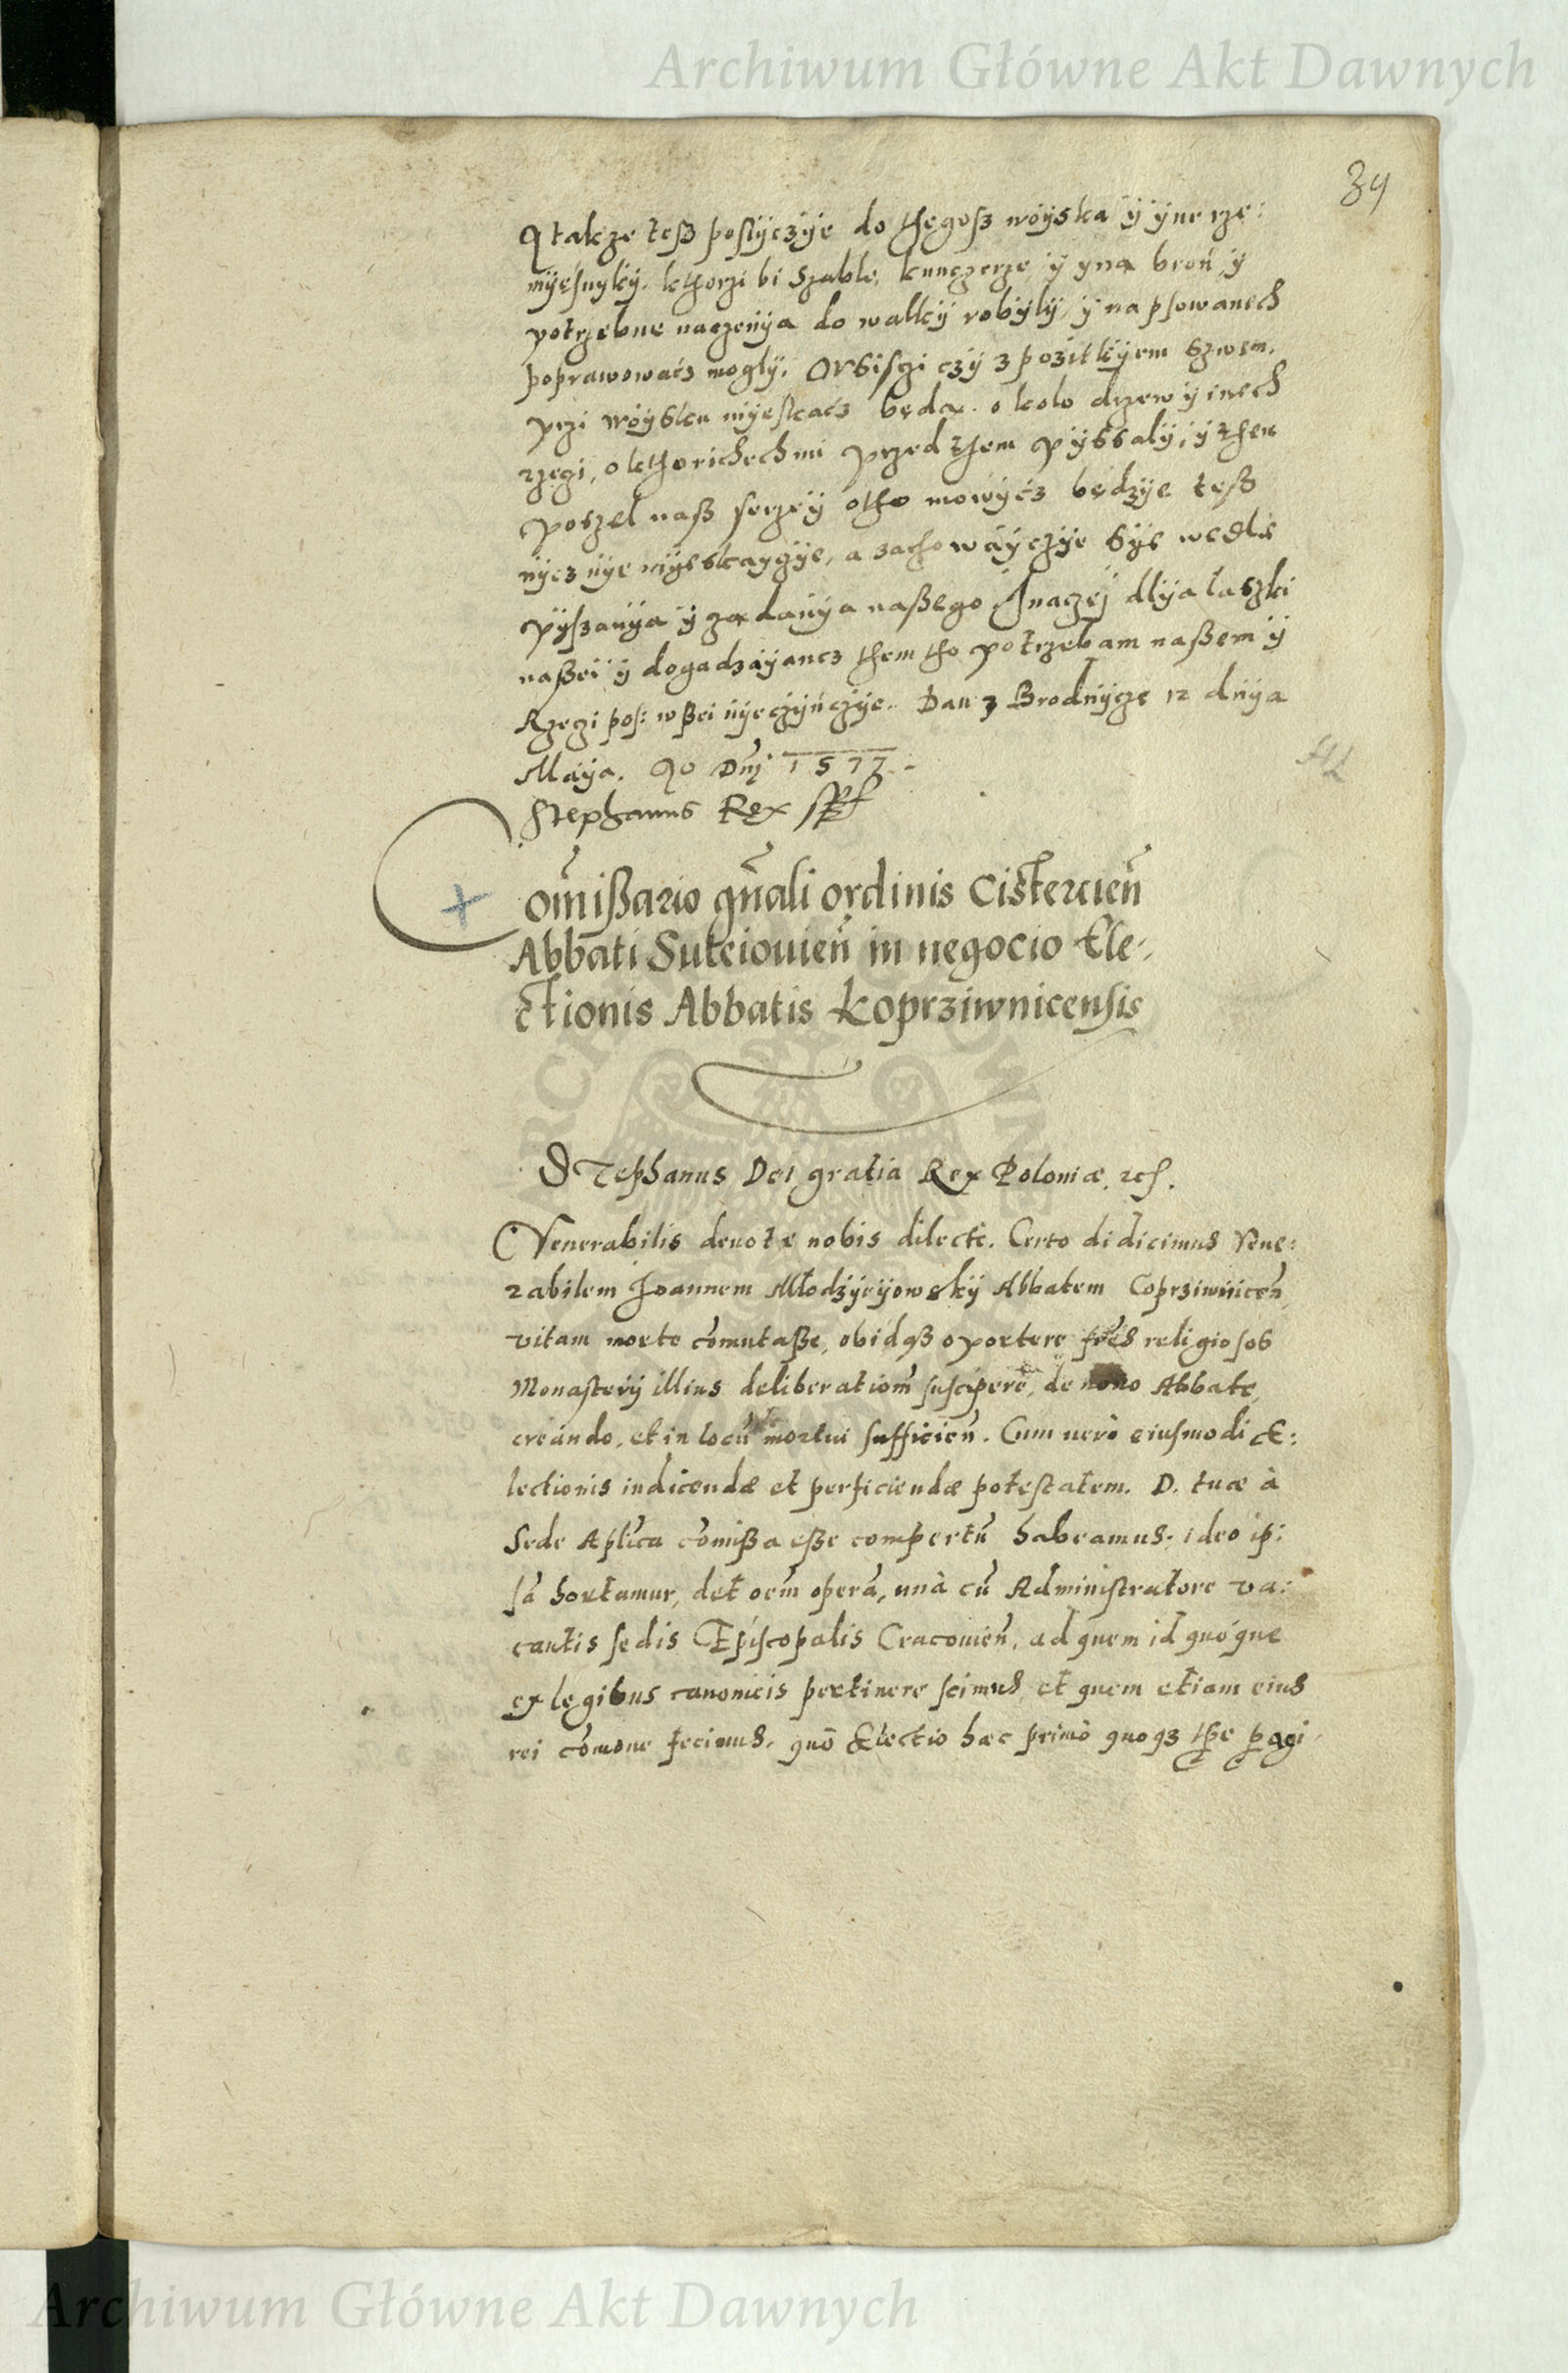 Archiwum Główne Akt Dawnych
34
A takze tesz poslyczÿe do thegosz wóÿska ÿ ÿne rze:
mÿesnykÿ. kthorzi bi szable, kunczerze, ÿ yna bron ÿ
potrzebne naczenÿa do walkÿ robÿlÿ, ÿ na psowanech
poprawowacz moglÿ. czÿ z pozitkÿem szwem.
przi wóÿsku mÿeskacz będa. o kolo drzew ÿ inech
rzeczi, o kthorichechmi przed them pÿssalÿ, ÿ then
poszel nasz serzeÿ otho mowÿcz będzÿe tesz
nÿcz nÿe mÿeskayczÿe, a zachowáÿczÿe sÿe wedle
pÿszanÿa ÿ zadanÿa naszego Jnaczej dlÿa laszki
naszei ÿ dogadzaÿancz them tho potrzebam naszem ÿ
Rzeczi pos: wszei nÿeczÿnczÿe. Dan z Brodnÿcze 12 dnÿa
Maÿa. Ao Dnj 1577.
Stephanus Rex sspt
Com̃iszario gñali ordinis Cistercieñ
Abbati Sulciouieñ in negocio Ele-
ctionis Abbatis Koprziwnicensis
Stephanus Dei gratia Rex Poloniæ. etc.
Venerabilis deuote nobis dilecte. Certo didicimus Vene:
rabilem Joannem Młodzÿeÿowskÿ Abbatem Coprziwniceñ
vitam morte com̃utasze, obidqß oportere fres religiosos
Monasterÿ illius deliberationẽ suscipere, de nouo Abbate
creando, et in locũ mortui sufficieñ. Cum uerò eiusmodi E:
lectionis indicendæ et perficiendæ potestatem. D. tuæ à
Sede Aplica comißa eße compertũ habeamus. ideo ip:
sã hortamur, det oem̃ operã, unà cũ Administratore va:
cantis sedis Episcopalis Cracouieñ, ad quem id quóque
ex legibus canonicis pertinere scimus, et quem etiam eius
rei com̃onefecimus. quõ Electio hæc primò quoqz tpe pagi
Archiwum Główne Akt Dawnych